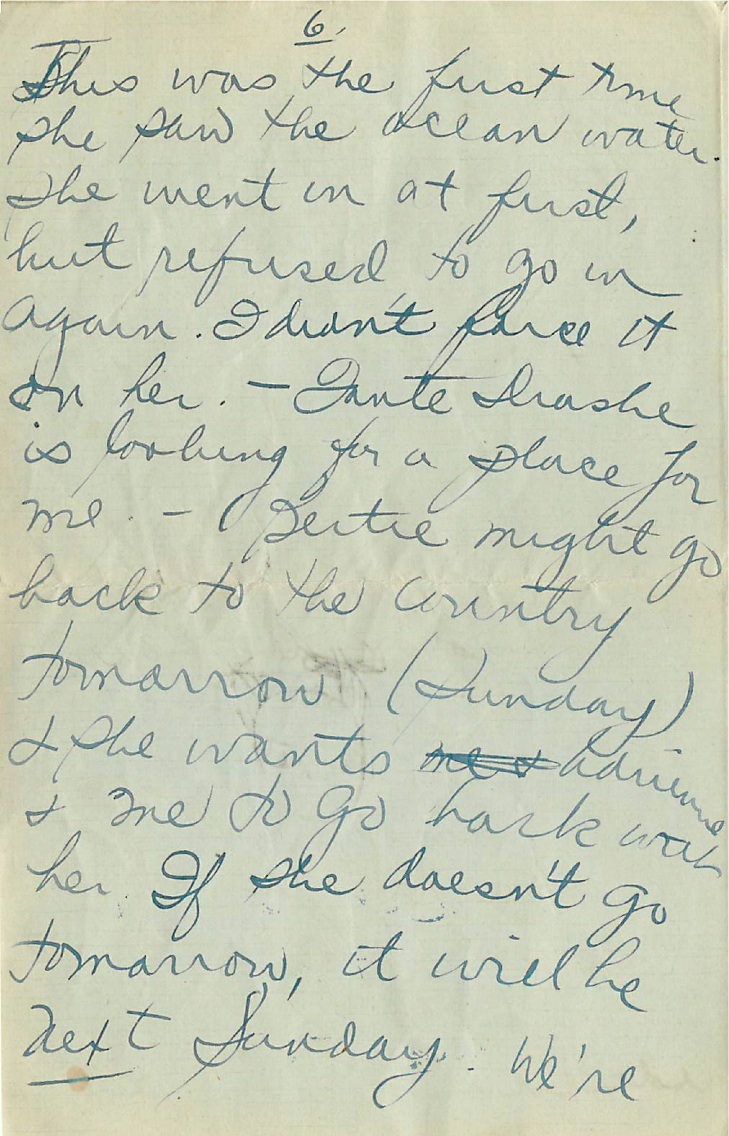 6.
This was the first time
she saw the ocean water.
She went in at first,
but refused to go in
again. I didn't force it
on her. – Tante Drashe
is looking for a place for
me. – Bertie might go
back to the country
tomorrow (Sunday)
& she wants me & Adrienne
& me to go back with
her. If she doesn't go
tomorrow, it will be
next Sunday. We're